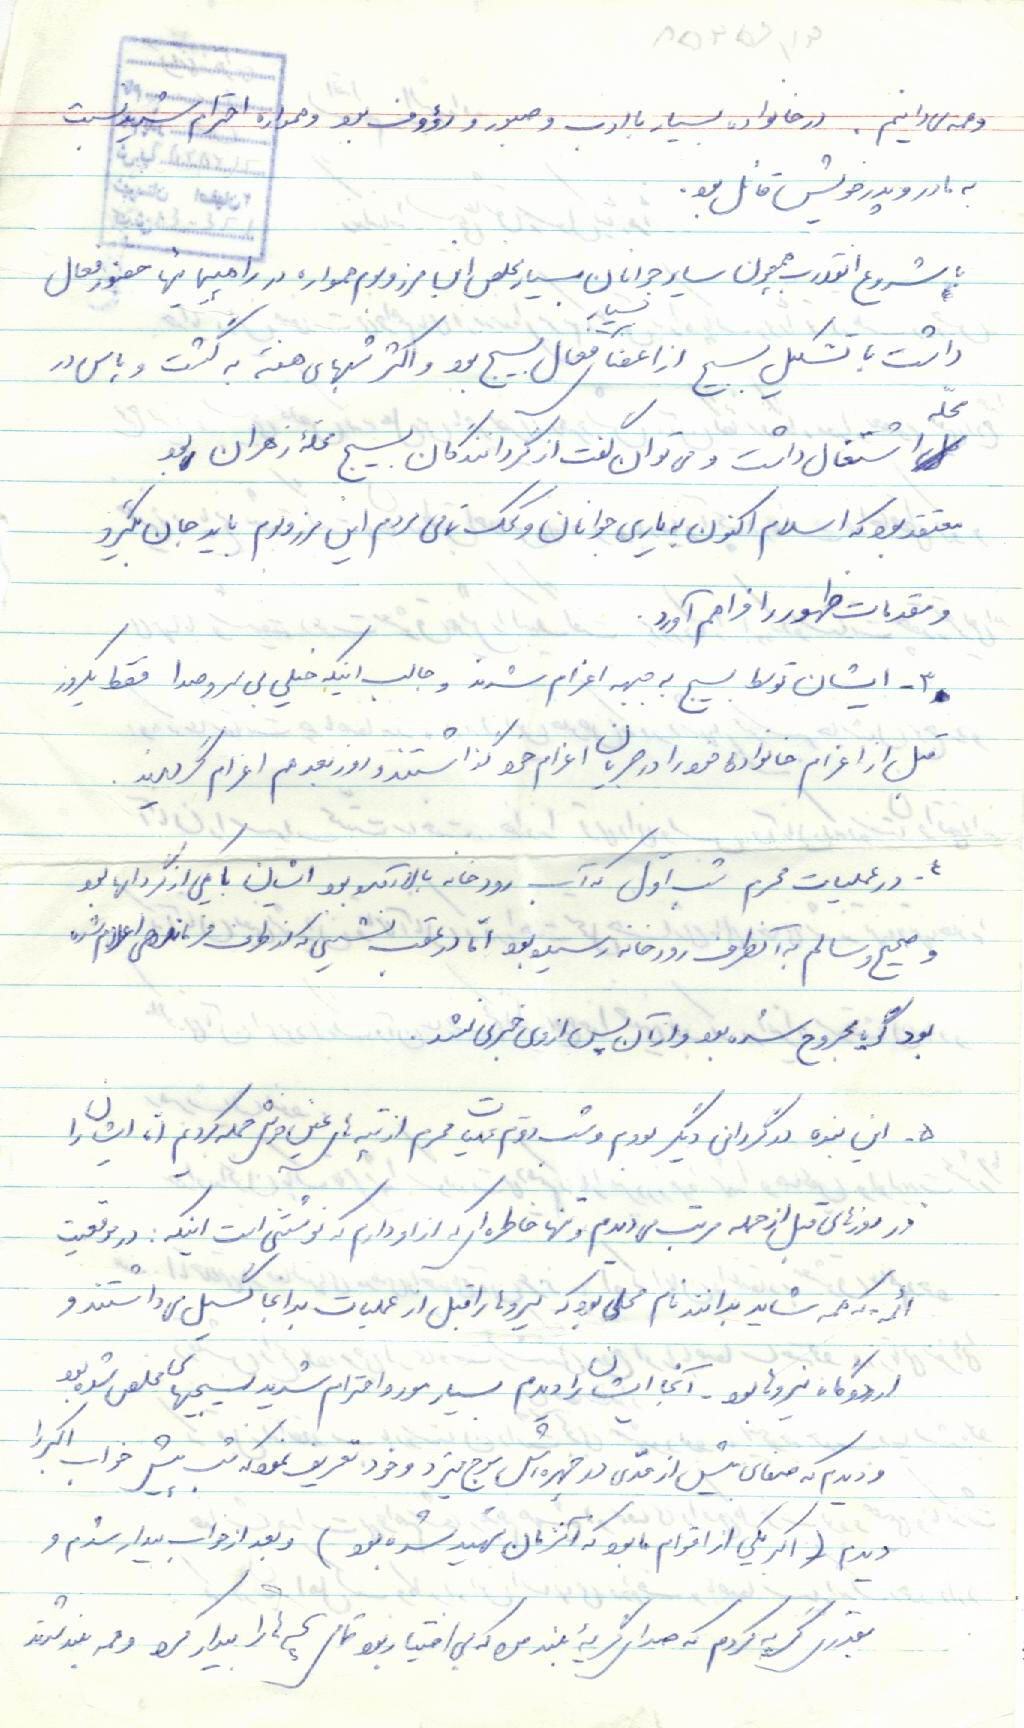 و همه می‌دانیم . در خانواده بسیار با ادب و صبور و رؤوف بود و همواره احترام شدید نسبت
به مادر و پدر خویش قائل بود .
با شروع انقلاب همچون سایر جوانان بسیار مخلص این مرز و بوم همواره در راهپیمائیها حضور فعال
داشت با تشکیل بسیج از اعضای بسیار فعال بسیج بود و اکثر شبهای هفته به گشت و پاس در
محلّه اشتغال داشت و می توان گفت از گردانندگان بسیج محلهٔ زهران بود
معتقد بود که اسلام اکنون به یاری جوانان و کمک تمامی مردم این مرز و بوم باید جان بگیرد
و مقدمات ظهور را فراهم آورد .
۳- ایشان توسط بسیج به جبهه اعزام شدند و جالب اینکه خیلی بی سر و صدا فقط یکروز
قبل از اعزام خانواده خود را در جریان اعزام خود گذاشتند و روز بعد هم اعزام گردیدند .
٤- در عملیات محرم شب اول که آب رودخانه بالا آمده بود ایشان با یکی از گردانها بود
و صحیح و سالم به آنطرف رودخانه رسیده بود امّا در عقب نشینی که از طرف فرماندهی اعلام شده
بود گویا مجروح شده بود و از آن پس از وی خبری نشد .
۵- این بنده در گردانی دیگر بودم و شب دوّم عملیات محرم از تپه های عین خوش حمله کردیم امّا ایشان را
در روزهای قبل از حمله مرتب می دیدم و تنها خاطره ای که از او دارم که نوشتنی است اینکه : در موقعیت
ائمه که همه شاید بدانند نام محلی بود که نیروها را قبل از عملیات بدانجا گسیل می داشتند و
اردوگاه نیروها بود - آنجا ایشان را دیدم بسیار مورد احترام شدید بسیجیهای مخلص شده بود
و دیدم که صفای بیش از حدّی در چهره اش موج میزد و خود تعریف نمود که شب پیش خواب اکبر را
دیدم ( اکبر یکی از اقوام ما بود که آنزمان شهید شده بود ) و بعد از خواب بیدار شدم و
بقدری گریه کردم که صدای گریهٔ بلند من که بی اختیار بود تمامی بچه ها را بیدار کرد و همه بلند شدند